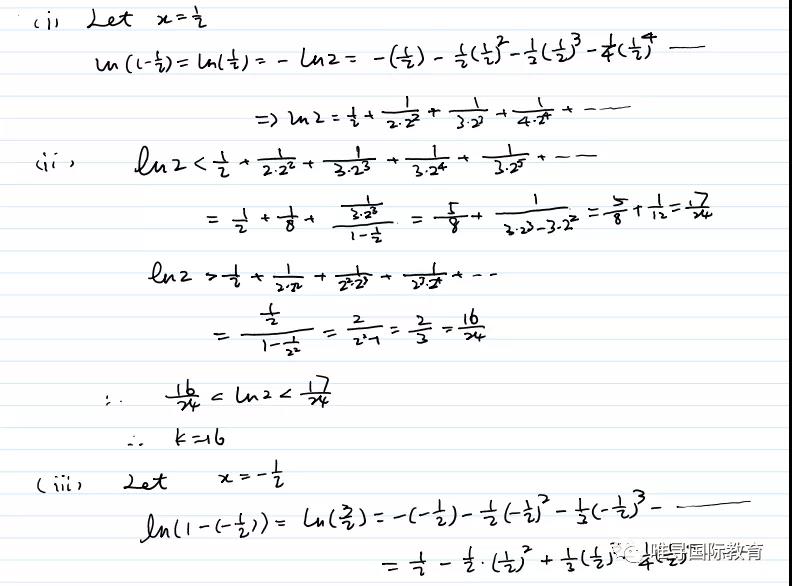 (i) Let x=½
ln(1-½)=ln(½)=-ln2=-(½)-½(½)²-⅓(½)³-¼(½)⁴ ——
=> ln2=½+1/(2·2²)+1/(3·2³)+1/(4·2⁴)+-----
(ii) ln2<½+1/(2·2²)+1/(3·2³)+1/(3·2⁴)+1/(3·2⁵)+---
=½+⅛+(1/(3·2³))/(1-½)=5/8+1/(3·2³-3·2²)=5/8+1/12=17/24
ln2>½+1/(2·2²)+1/(2²·2³)+1/(2³·2⁴)+--
=(½)/(1-1/2²)=2/(2²-1)=2/3=16/24
∴ 16/24<ln2<17/24
∴ k=16
(iii) Let x=-½
ln(1-(-½))=ln(3/2)=-(-½)-½(-½)²-⅓(-½)³- ——
=½-½·(½)²+⅓(½)³-¼(½)
唯寻国际教育